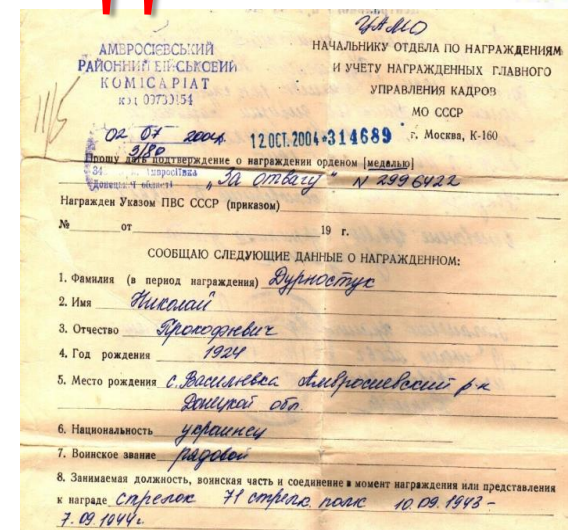 ЦАМО
АМВРОСІЄВСЬКИЙ
РАЙОННИЙ ВІЙСЬКОВИЙ
КОМІСАРІАТ
НАЧАЛЬНИКУ ОТДЕЛА ПО НАГРАЖДЕНИЯМ
И УЧЕТУ НАГРАЖДЕННЫХ ГЛАВНОГО
УПРАВЛЕНИЯ КАДРОВ
МО СССР
г. Москва, К-160
02 07 2004
3/80
12 ОКТ. 2004 * 314689
Прошу дать подтверждение о награждении орденом [медалью]
„За отвагу" N 2996422
Награжден Указом ПВС СССР (приказом)
№ от 19 г.
СООБЩАЮ СЛЕДУЮЩИЕ ДАННЫЕ О НАГРАЖДЕННОМ:
1. Фамилия (в период награждения) Дурностук
2. Имя Николай
3. Отчество Прокофьевич
4. Год рождения 1924
5. Место рождения с. Васильевка Амвросиевский р-н
Донецкой обл.
6. Национальность украинец
7. Воинское звание рядовой
8. Занимаемая должность, воинская часть и соединение в момент награждения или представления
к награде стрелок 71 стрелк. полк 10.09.1943 –
7.09.1944г.